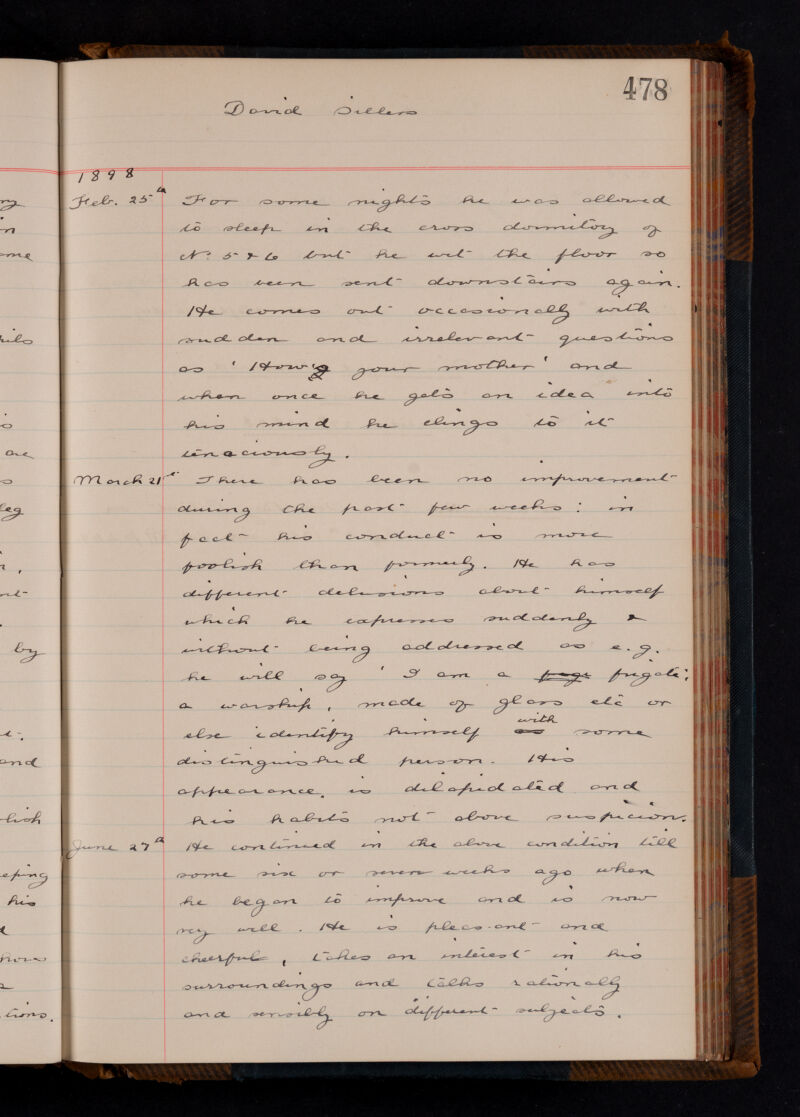 478
David Sillers
1898
Feb. 25th For some nights he was allowed
to sleep in the cross dormitory of
No. 5 & 6 but he wet the floor so
has been sent downstairs again.
He comes out occasionally with
sudden and irrelevant questions
as 'How's your mother' and
when once he gets an idea into
his mind he clings to it
tenaciously.
March 21st There has been no improvement
during the past few weeks: in
fact his conduct is more
foolish than formerly. He has
different delusions about himself
which he expresses suddenly &
without being addressed as e.g.
he will say 'I am a frigate',
a warship, made of glass etc or
else identify himself with some
distinguished person. His
appearance, is dilapidated and
his habits not above suspicion.
June 27th He continued in the above condition till
some six or seven weeks ago when
he began to improve and is now
very well. He is pleasant and
cheerful, takes an interest in his
surroundings and talks rationally
and sensibly on different subjects.